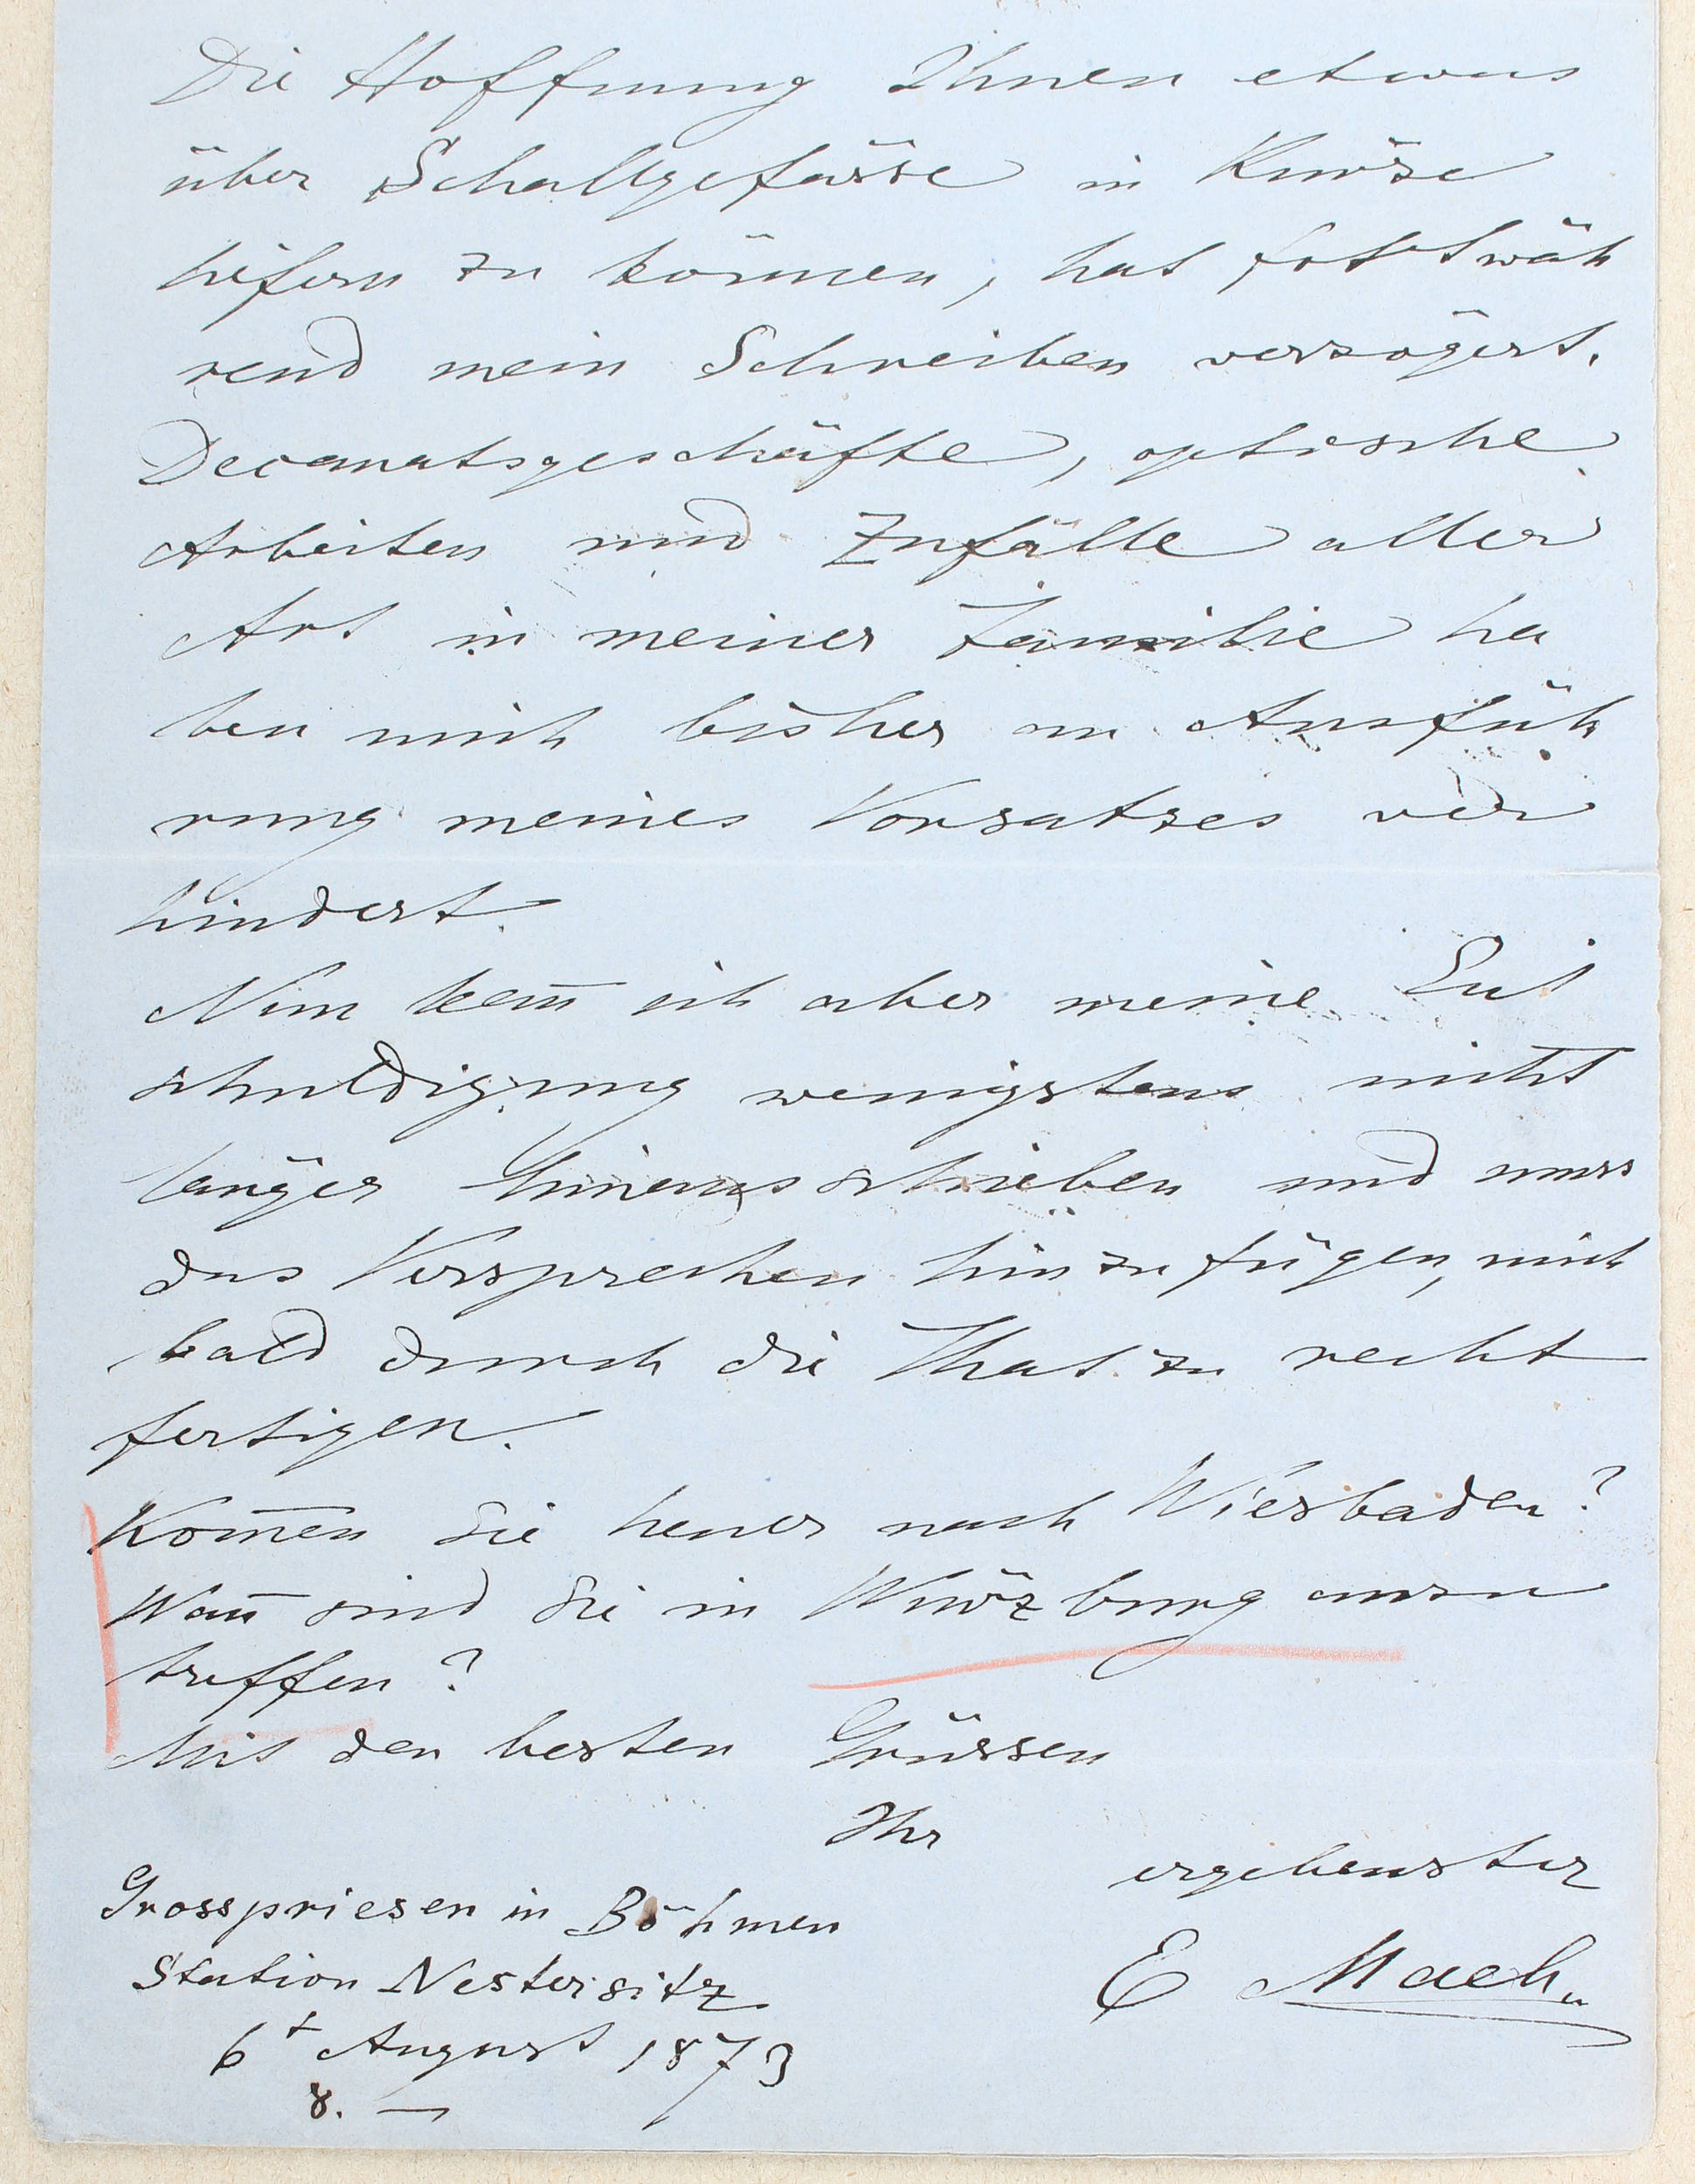 Die Hoffnung Ihnen etwas
über Schallgefässe in Kürze
liefern zu können, hat fortwäh
rend mein Schreiben verzögert.
Decanatsgeschäfte, optische
Arbeiten und Zufälle aller
Art in meiner Familie ha
ben mich bisher an Ausfüh
rung meines Vorsatzes ver
hindert.
Nun kañ ich aber meine Ent
schuldigung wenigstens nicht
länger hinausschieben und muss
das Versprechen hinzufügen, mich
bald durch die That zu recht
fertigen.
Kom̄en Sie heuer nach Wiesbaden?
Wañ sind Sie in Würzburg anzu
treffen?
Mit den besten Grüssen
Ihr
ergebenster
E Mach
Grosspriesen in Böhmen
Station Nestersitz
6t August 1873
8. —